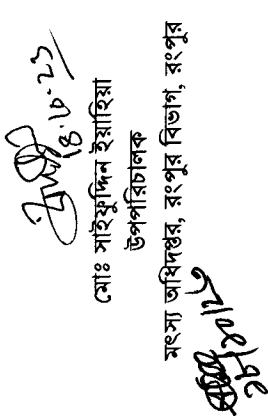 18.10.23
মোঃ সাইফুদ্দিন ইয়াহিয়া
উপপরিচালক
মৎস্য অধিদপ্তর, রংপুর বিভাগ, রংপুর